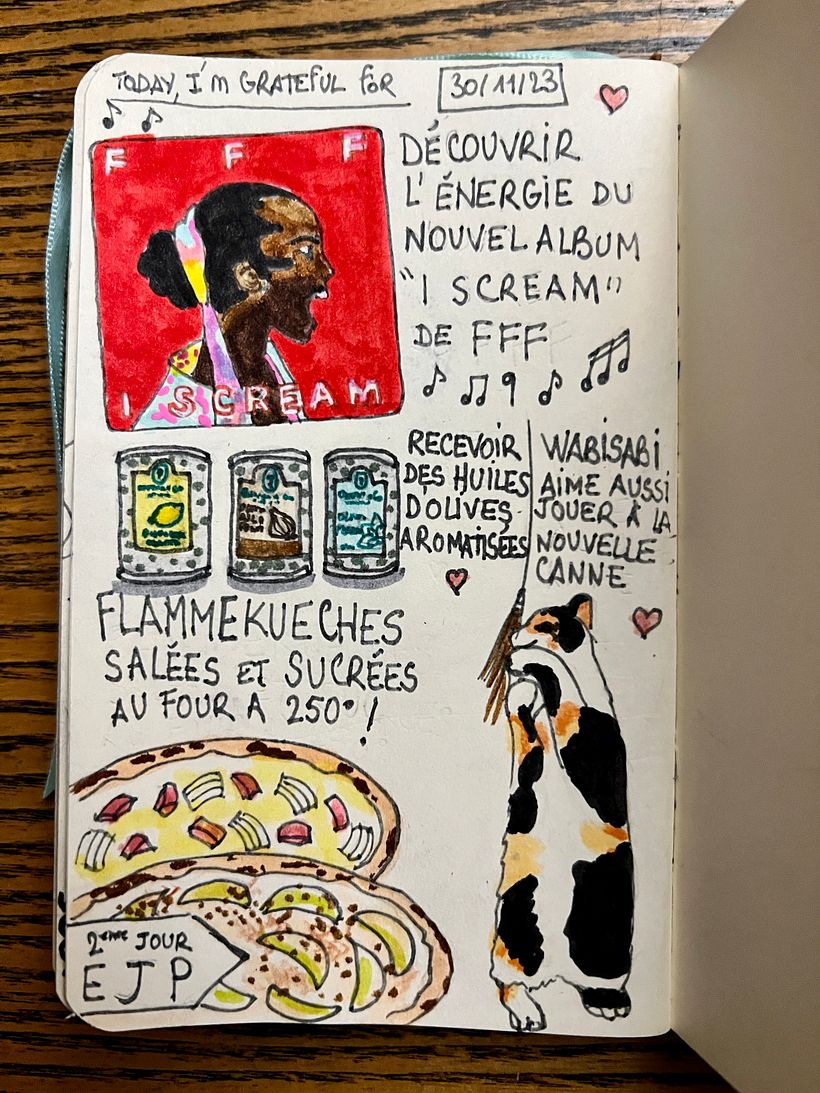 TODAY, I'M GRATEFUL FOR
30/11/23
F F F
I SCREAM
DÉCOUVRIR
L'ÉNERGIE DU
NOUVEL ALBUM
"I SCREAM"
DE FFF
RECEVOIR
DES HUILES
D'OLIVES
AROMATISÉES
WABISABI
AIME AUSSI
JOUER À LA
NOUVELLE
CANNE
FLAMMEKUECHES
SALÉES ET SUCRÉES
AU FOUR A 250° !
2ème JOUR
EJP